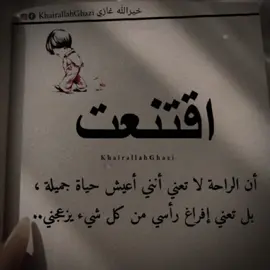 KhairallahGhazi خيرالله غازي
اقتنعت
KhairallahGhazi
أن الراحة لا تعني أنني أعيش حياة جميلة ،
بل تعني إفراغ رأسي من كل شيء يزعجني..